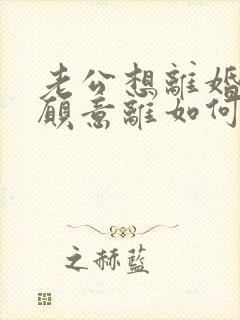 老公想離婚
願意離如何
之赫藍